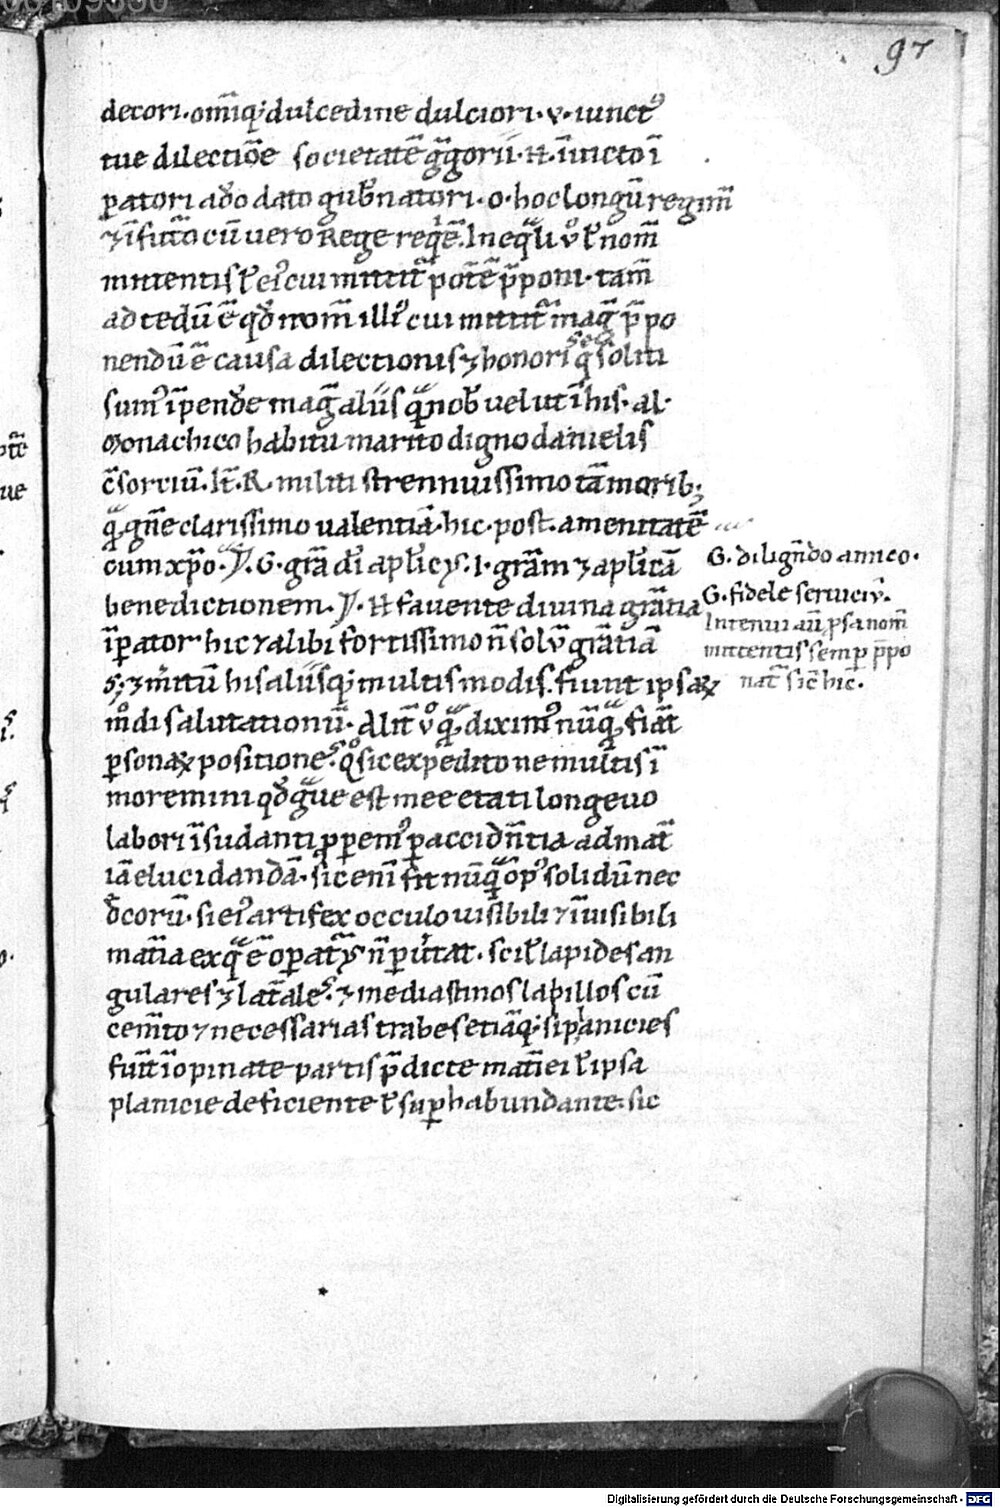 97
decori. om̄iq; dulcedine dulciori. v. iunct⁹
tue dilectiōe societatē g̃gorii. H. īuicto ī
ꝑatori ad̓o dato gub̓natori. o. hoc longū regim̄
⁊ ī futuro cū uero Rege req̇ē. In eq̃li v̊ ł nom̄
mittentis ł ei⁹ cui mittit̃ potē p̃poni. tam̄
ad cedū ē qd̓ nom̄ illi⁹ cui mittit̃ mag̃ p̃po
nendū ē causa dilectionis ⁊ honoris q̃ soliti
sum⁹ īpend̓e mag̃ aliis q̃ nob̓ uelut ī his. al.
Monachico habitu marito digno danielis
c̄sortiū. It̄. R. militi strennuissimo tā morib;
q̃ gn̄e clarissimo ualentiā. hic. post. amenitatē
cum xp̄o. Y. G. gr̄a d̄i apl̄ic⁹. I. gr̄am ⁊ apl̄icā
benedictionem. Y. H fauente diuina gr̄atia
īꝑator hic ⁊ alibi fortissimo n̄ solū gr̄atiā
s; ⁊ m̄itū his aliisq; multis modis. fiunt ipsaꝝ
m̊di salutationū. Alit̃ v̊ q̃ dixim⁹ nūq̃ fiāt
ꝑsonaꝝ positiones. Q̊ sic expedito ne multis ī
moremini qd̓ g̃ue est mee etati longeuo
labori īsudanti ꝓꝑem⁹ ꝑ accid̄ntia ad mat̃
iā elucidandā. sic eni fit nūq̃ op⁹ solidū nec
d̓corū. si ei⁹ artifex occulo uisibili ⁊ īuisibili
mat̃ia ex q̃ ē oꝑat̃⁹ n̄ ꝑuitat. scił lapides an
gulares ⁊ lat̃ales. ⁊ mediastinos lapillos cū
cem̄to ⁊ necessarias trabes etiāq; si planicies
fuit̃ īopinate partis p̃dicte mat̃iei ł ipsa
planicie deficiente ł suꝑhabundante. sic
G. dilign̄do amico.
G. fidele seruiciū.
In tenui aū ꝑsa nom̄
mittentis semꝑ p̄po
nat̃ sic̄ hic.
Digitalisierung gefördert durch die Deutsche Forschungsgemeinschaft - DFG